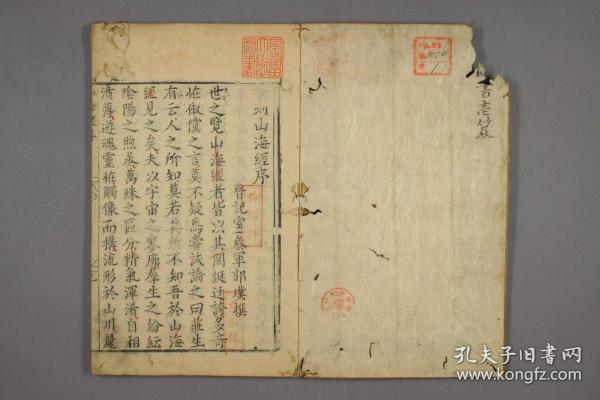 刻山海經序
晉記室參軍郭璞撰
世之覽山海經者皆以其閎誕迂誇多奇
怪俶儻之言莫不疑焉嘗試論之曰莊生
有云人之所知莫若其所不知吾於山海
經見之矣夫以宇宙之寥廓羣生之紛紜
陰陽之煦蒸萬殊之區分精氣渾淆自相
濆薄遊魂靈怪觸像而構流形於山川麗
書壱笈
1050
1
孔夫子旧书网
www.kongfz.com